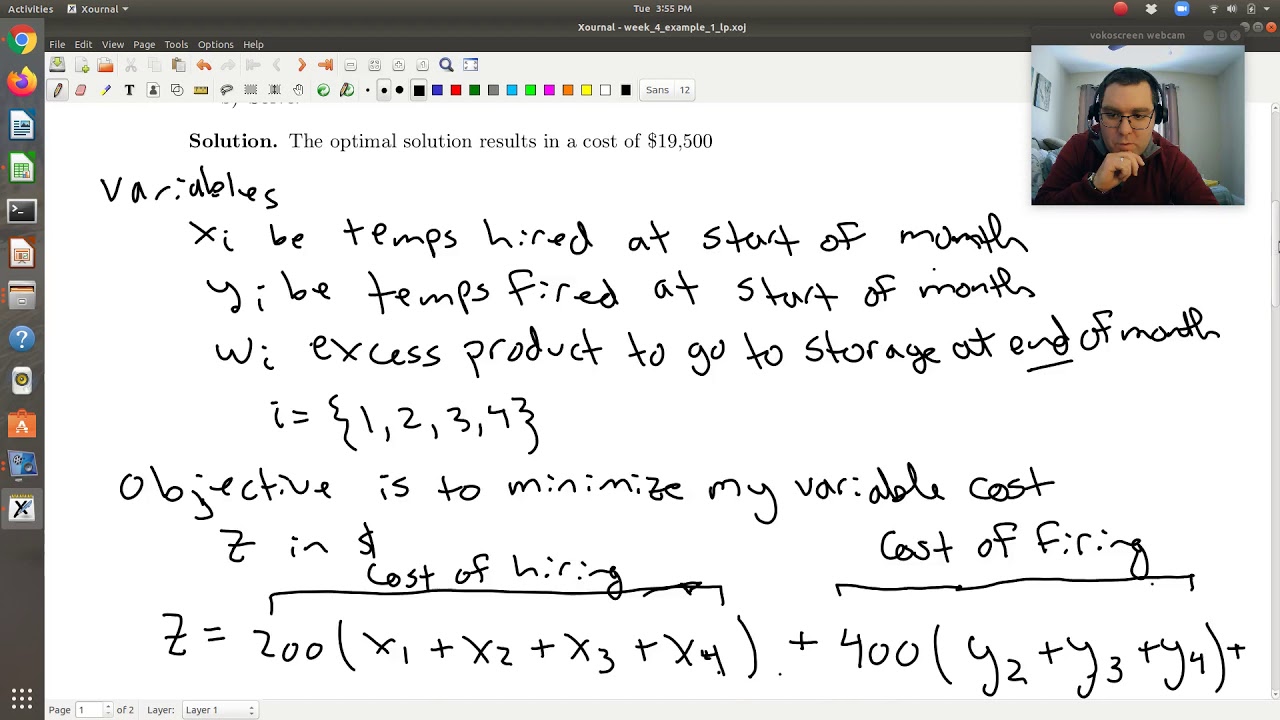 Activities Xournal Tue 3:55 PM
Xournal - week_4_example_1_lp.xoj
vokoscreen webcam
File Edit View Page Tools Options Help
Sans 12
Solution. The optimal solution results in a cost of $19,500
Variables
xi be temps hired at start of month
yi be temps fired at start of month
wi excess product to go to storage at end of month
i = {1, 2, 3, 4}
Objective is to minimize my variable cost
Z in $
cost of hiring
cost of firing
Z = 200(x1 + x2 + x3 + x4) + 400(y2 + y3 + y4) +
Page 1 of 2 Layer: Layer 1